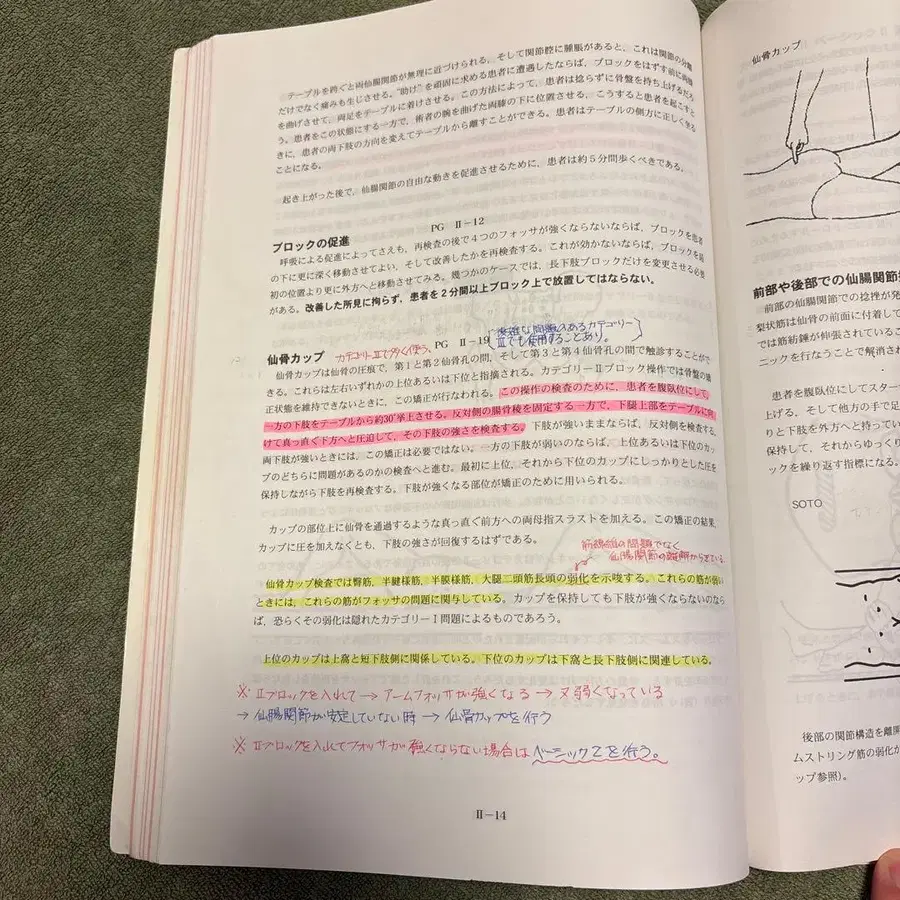 テーブルを跨ぐと両仙腸関節が無理に近づけられる。そして関節腔に腫脹があると、これは関節の分離
だけでなく痛みも生じさせる。“助け”を頑固に求める患者に遭遇したならば、ブロックをはずす前に両膝
を曲げさせて、両足をテーブルに着けさせる。この方法によって、患者は捻らずに骨盤を持ち上げるだろ
う。患者をこの状態にする一方で、術者の腕を曲げた両膝の下に位置させる。こうすると患者を起こすと
きに、患者の両下肢の方向を変えてテーブルから離すことができる。患者はテーブルの側方に正しく坐る
ことになる。
起き上がった後で、仙腸関節の自由な動きを促進させるために、患者は約5分間歩くべきである。
PG Ⅱ−12
ブロックの促進
呼吸による促進によってさえも、再検査の後で4つのフォッサが強くならないならば、ブロックを患者
の下に更に深く移動させてよい、そして改善したかを再検査する。これが効かないならば、ブロックを最
初の位置より更に外方へと移動させてみる。幾つかのケースでは、長下肢ブロックだけを変更させる必要
がある。改善した所見に拘らず、患者を2分間以上ブロック上で放置してはならない。
仙骨カップ カテゴリーⅡで多く使う、PG Ⅱ−19 複雑な問題のあるカテゴリー
Ⅲでも使用することあり。
仙骨カップは仙骨の圧痕で、第1と第2仙骨孔の間、そして第3と第4仙骨孔の間で触診することがで
きる。これらは左右いずれかの上位あるいは下位と指摘される。カテゴリーⅡブロック操作では骨盤の矯
正状態を維持できないときに、この矯正が行なわれる。この操作の検査のために、患者を腹臥位にして、
一方の下肢をテーブルから約30°挙上させる。反対側の腸骨稜を固定する一方で、下腿上部をテーブルに向
けて真っ直ぐ下方へと圧迫して、その下肢の強さを検査する。下肢が強いままならば、反対側を検査する。
両下肢が強いときには、この矯正は必要ではない。一方の下肢が弱いのならば、上位あるいは下位のカッ
プのどちらに問題があるのかの検査へと進む。最初に上位、それから下位のカップにしっかりとした圧を
保持しながら下肢を再検査する。下肢が強くなる部位が矯正のために用いられる。
カップの部位上に仙骨を通過するような真っ直ぐ前方への両母指スラストを加える。この矯正の結果、
カップに圧を加えなくとも、下肢の強さが回復するはずである。
の問題でなく
仙腸関節の
仙骨カップ検査では臀筋、半腱様筋、半膜様筋、大腿二頭筋長頭の弱化を示唆する。これらの筋が弱い
ときには、これらの筋がフォッサの問題に関与している。カップを保持しても下肢が強くならないのなら
ば、恐らくその弱化は隠れたカテゴリーⅠ問題によるものであろう。
上位のカップは上窩と短下肢側に関係している。下位のカップは下窩と長下肢側に関連している。
※ Ⅱブロックを入れて → アームフォッサが強くなる → 又弱くなっている
→ 仙腸関節が安定していない時 → 仙骨カップを行う
※ Ⅱブロックを入れてフォッサが強くならない場合はベーシック2を行う。
Ⅱ−14
仙骨カップ
前部や後部での仙腸関節
前部の仙腸関節での捻挫が発
梨状筋は仙骨の前面に付着して
では筋紡錘が伸張されているこ
ニックを行なうことで解消さ
患者を腹臥位にしてスター
上げる、そして他方の手で足
りと下肢を外方へと持ってい
保持して、それからゆっくり
ックを繰り返す指標になる。
SOTO
後部の関節構造を離開
ムストリング筋の弱化が
ップ参照)。